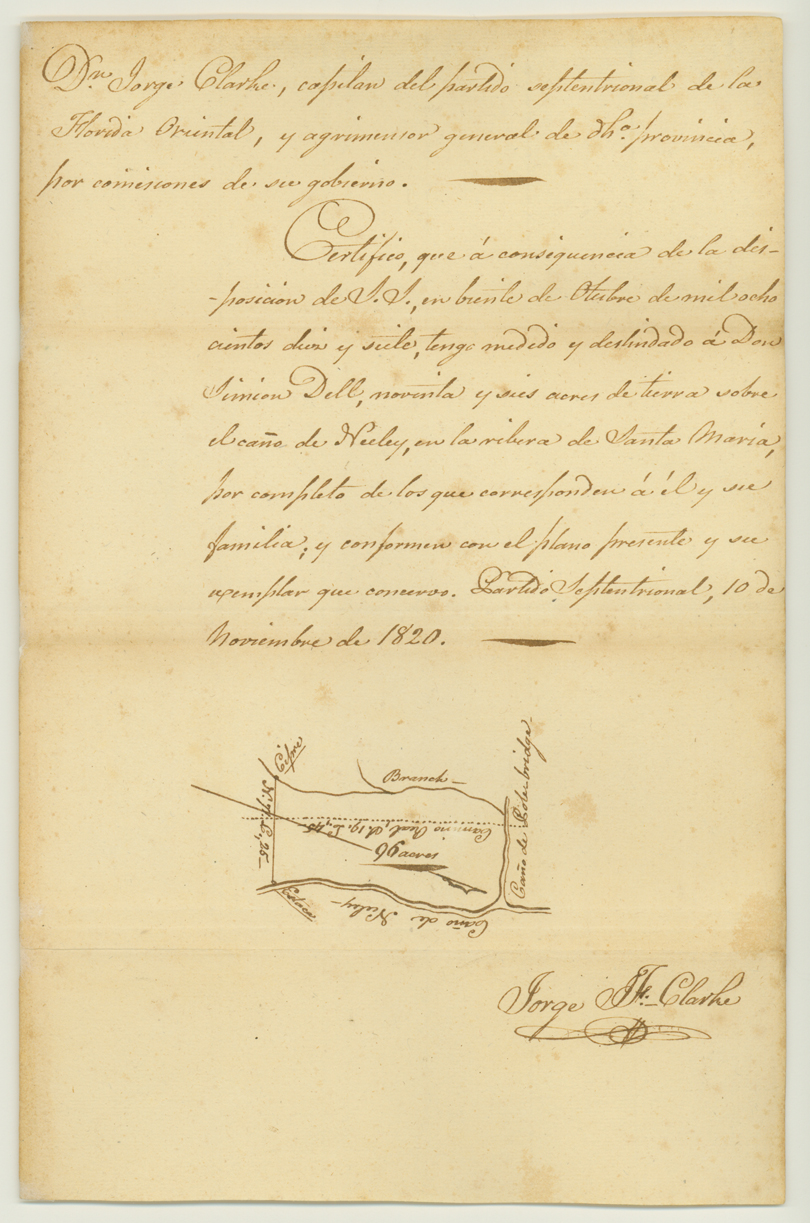 Dn. Jorge Clarke, capitan del partido septentrional de la
Florida Oriental, y agrimensor general de dha. provincia,
por comisiones de su gobierno.
Certifico, que á consequencia de la dis-
-posicion de S. S., en biente de Otubre de mil ocho
cientos diez y siete, tengo medido y deslindado á Don
Simeon Dell, noventa y seis acres de tierra sobre
el caño de Neeley, en la ribera de Santa María,
por completo de los que corresponden á él y su
familia; y conformen con el plano presente y su
exemplar que concervo. Partido Septentrional, 10 de
Noviembre de 1820.
Cipre
Branch
Camino Real,
96 acres
Estaca
Caño de Neeley
Caño de Polebridge
Jorge J. F. Clarke